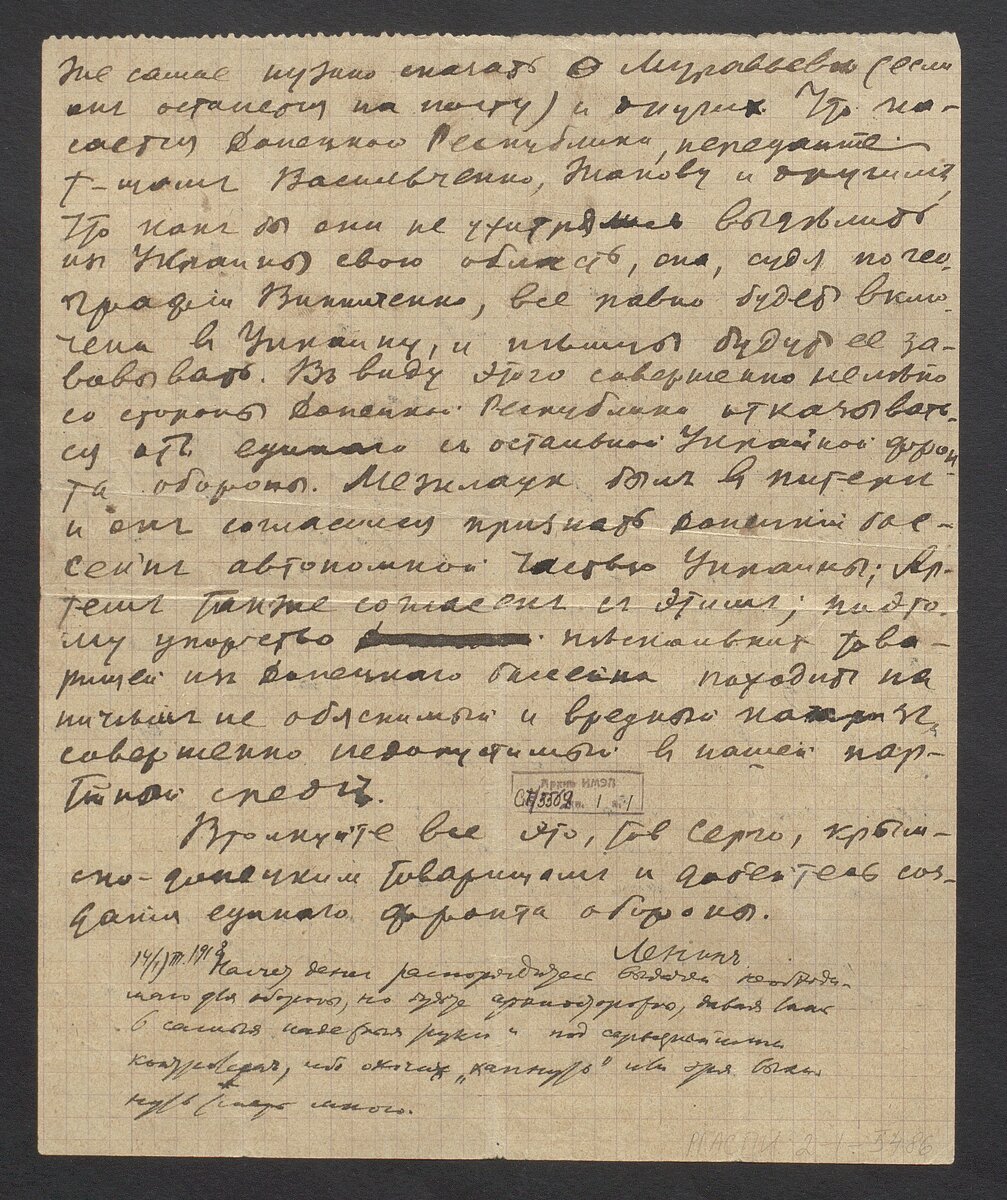 же самае нужно сказать о Муравьевѣ (если
онъ останется на посту) и других Что ка-
сается Донецкой Республики, передайте
т-щамъ Васильченко, Жакову и другимъ,
что какъ бы они не ухитрялись выдѣлить
изъ Украины свою область, она, судя по гео-
графiи Винниченко, все равно будетъ вклю-
чена въ Украину, и нѣмцы будутъ ее за-
вовывать. Въ виду этого совершенно нелѣпо
со стороны Донецкой Республики отказывать-
ся отъ единаго съ остальной Украйной фрон-
та обороны. Межлаук былъ въ питере
и онъ согласился признать Донецкiй бас-
сейнъ автономной частью Украины; Ар-
темъ также согласенъ съ этимъ; поэто-
му упорство нѣсколькихъ това-
рищей изъ Донецкаго бассейна походитъ на
ничѣмъ не обяснимый и вредный капризъ,
совершенно недопустимый въ нашей пар-
тiйной средѣ.
Архив ИМЭЛ
1 1
Втолкуйте все это, тов Серго, крым-
ско-донецким товарищамъ и добейтесь соз-
данiя единаго фронта обороны.
Ленинъ
14/III.1918
Насчет денег распорядитесь выдачей необходи-
маго для обороны, но будьте архиосторожны, давая
в самыя надежныя руки и под серьезнейшим
контролем, ибо охочих „хапнуть“ или зря
много.
РГАСПИ 2-1-5486